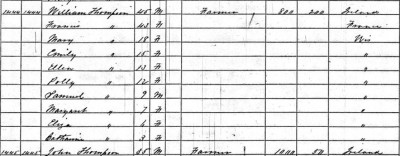 1444 1444 William Thompson 45 M Farmer 800 200 Ireland
Francis " 43 F France
Mary " 18 F Wis
Emily " 15 F "
Ellen " 13 F "
Polly " 12 F "
Samuel " 9 M "
Margaret " 7 F "
Eliza " 6 F "
Catherine " 3 F "
1445 1445 John Thompson 35 M Farmer 1000 50 Ireland